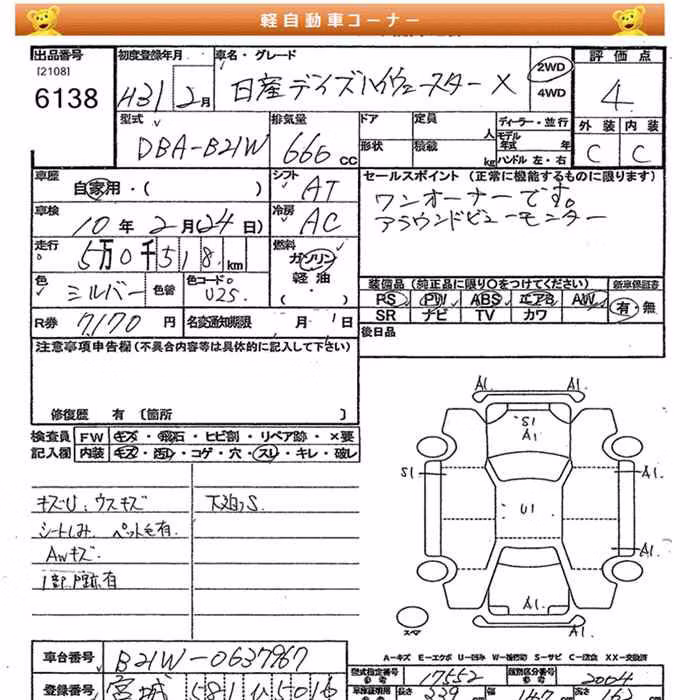 軽自動車コーナー
出品番号 初度登録年月 車名・グレード 評価点
[2108]
6138 H31 2月 日産デイズハイウェースターX 2WD 4WD 4
型式 排気量 ドア 定員 人 ディーラー・並行 外装 内装
DBA-B21W 666 cc 形状 積載 kg モデル年式 年 ハンドル 左・右 C C
車歴 自家用・( ) シフト AT セールスポイント (正常に機能するものに限ります)
車検 10年2月(24日) 冷房 AC ワンオーナーです。
アラウンドビューモニター
走行 5万0千518km 燃料 ガソリン
軽油
・( )
色 シルバー 色替 色コードo U25 装備品 (純正品に限り○をつけてください) 新車保証書
PS PW ABS エアB AW 有・無
R券 7,170円 名変通知期限 月 日 SR ナビ TV カワ
注意事項申告欄(不具合内容等は具体的に記入して下さい) 後日品
修復歴 有 〔箇所 〕
検査員 FW キズ・飛石・ヒビ割・リペア跡・×要
記入欄 内装 キズ・汚れ・コゲ・穴・スレ・キレ・破レ
キズU、ウスキズ 下廻りS
シートしみ ペット毛有
AWキズ
A1 A1
S1
A1
S1 A1
U1
A1
A1
A1
スペア
A-キズ E-エクボ U-凹み W-補修跡 S-サビ C-腐食 XX-交換済
車台番号 B21W-0637967 型式指定番号 17552 類別区分番号 2004
登録番号 宮城 581 い5016 長さ 339 cm